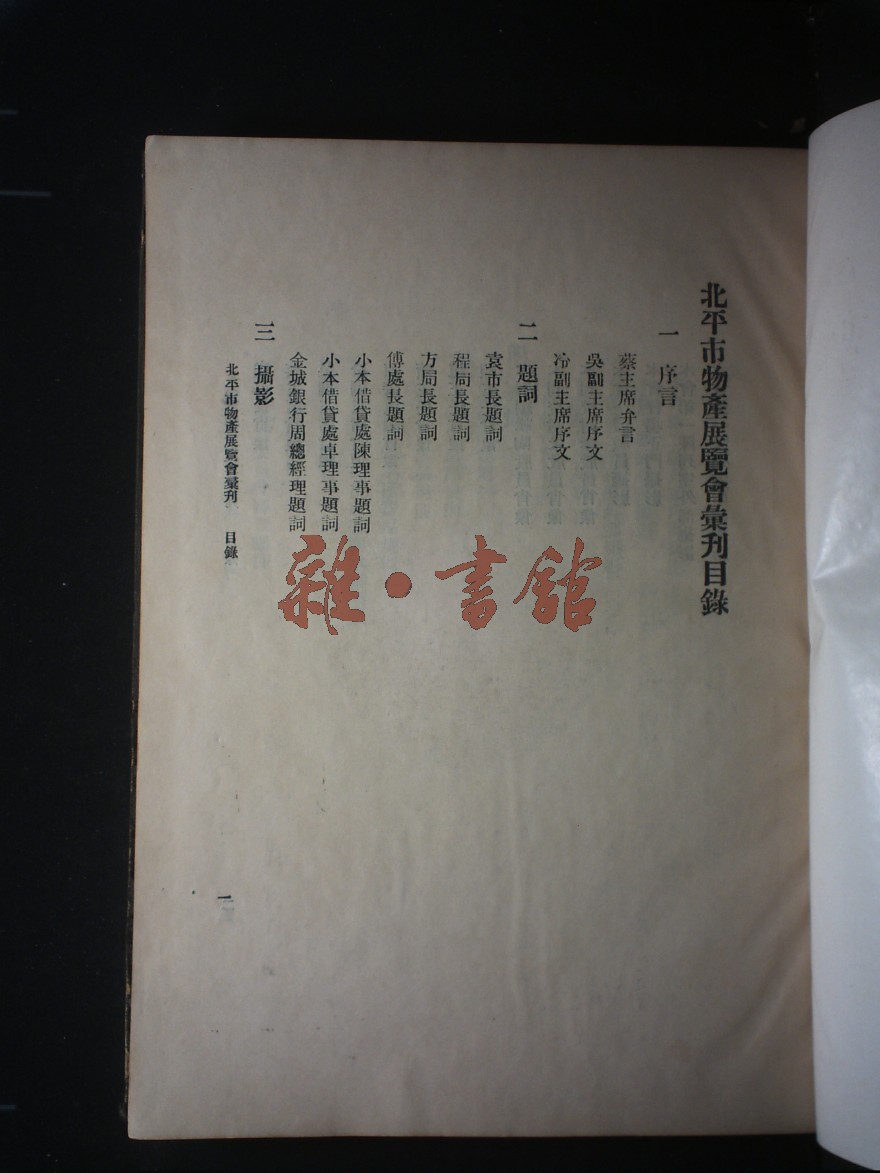 北平市物產展覽會彙刊目錄
一 序言
蔡主席弁言
吳副主席序文
冷副主席序文
二 題詞
袁市長題詞
程局長題詞
方局長題詞
傅處長題詞
小本借貸處陳理事題詞
小本借貸處卓理事題詞
金城銀行周總經理題詞
三 攝影
北平市物產展覽會彙刊 目錄
一
雜·書館